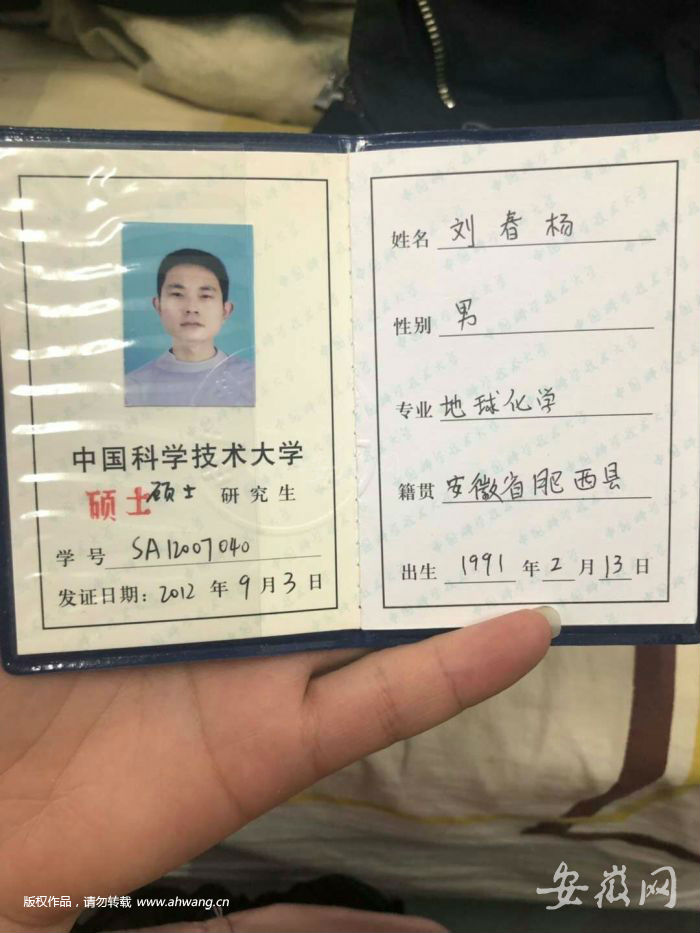 中国科学技术大学
硕士硕士 研究生
学号 SA12007040
发证日期：2012年9月3日
姓名 刘春杨
性别 男
专业 地球化学
籍贯 安徽省肥西县
出生 1991年2月13日
版权作品，请勿转载 www.ahwang.cn
安徽网